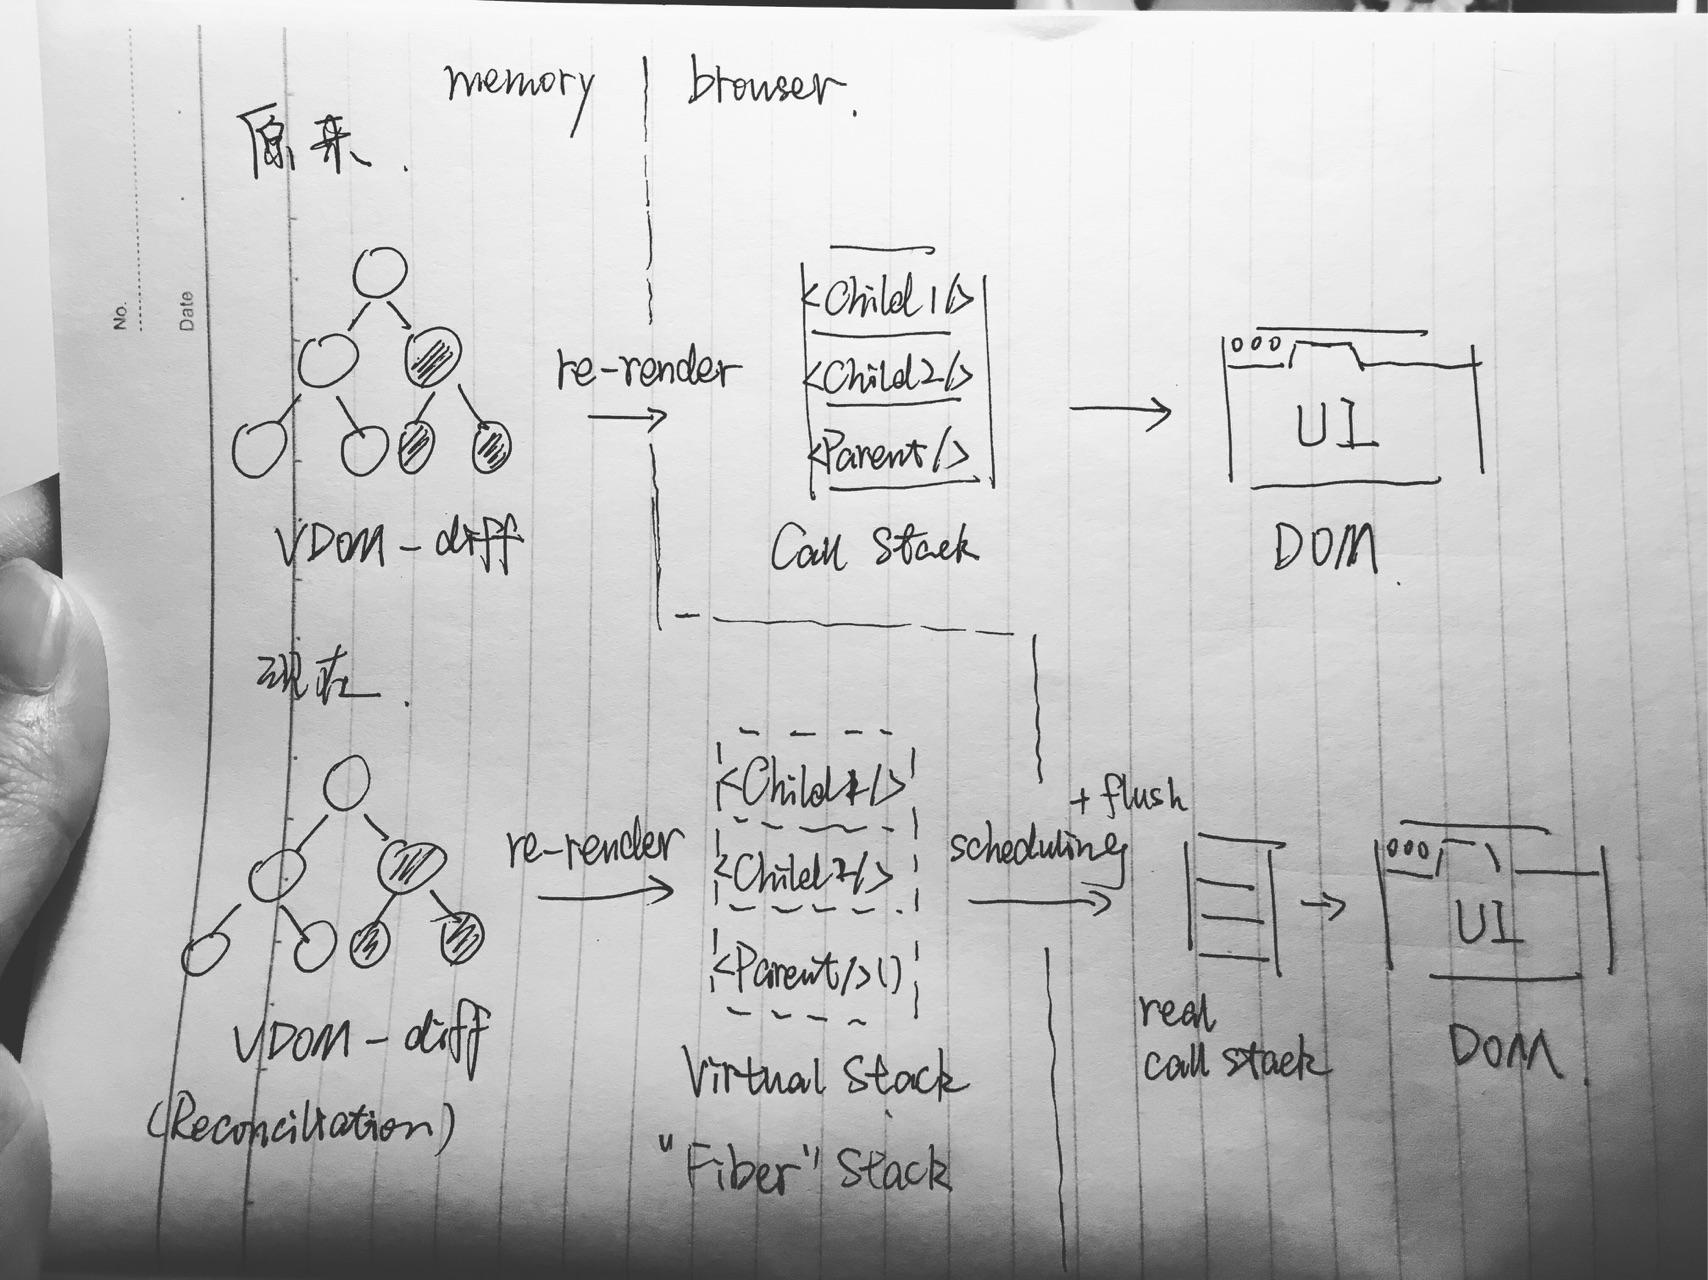 memory browser.
原来.
No.
Date
<Child1/>
<Child2/>
<Parent/>
re-render
UI
VDOM-diff
Call Stack
DOM.
现在.
<Child1/>
<Child2/>
<Parent/>()
re-render
scheduling
+ flush
UI
VDOM-diff
(Reconciliation)
Virtual Stack
"Fiber" Stack
real
call stack
DOM.